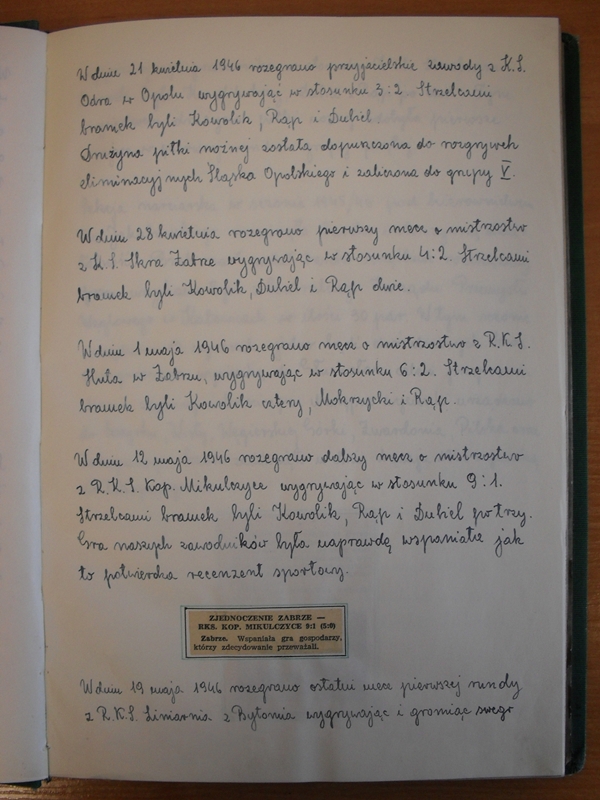 W dniu 21 kwietnia 1946 rozegrano przyjacielskie zawody z K.S.
Odra w Opolu wygrywając w stosunku 3:2. Strzelcami
bramek byli Kowolik, Rąp i Dubiel.
Drużyna piłki nożnej została dopuszczona do rozgrywek
eliminacyjnych Śląska Opolskiego i zaliczona do grupy V.
W dniu 28 kwietnia rozegrano pierwszy mecz o mistrzostwo
z K.S. Skra Zabrze wygrywając w stosunku 4:2. Strzelcami
bramek byli Kowolik, Dubiel i Rąp dwie.
W dniu 1 maja 1946 rozegrano mecz o mistrzostwo z R.K.S.
Huta w Zabrzu, wygrywając w stosunku 6:2. Strzelcami
bramek byli Kowolik cztery, Mokrzycki i Rąp.
W dniu 12 maja 1946 rozegrano dalszy mecz o mistrzostwo
z R.K.S. Kop. Mikulczyce wygrywając w stosunku 9:1.
Strzelcami bramek byli Kowolik, Rąp i Dubiel po trzy.
Gra naszych zawodników była naprawdę wspaniała jak
to potwierdza recenzent sportowy.
ZJEDNOCZENIE ZABRZE —
RKS. KOP. MIKULCZYCE 9:1 (5:0)
Zabrze. Wspaniała gra gospodarzy,
którzy zdecydowanie przeważali.
W dniu 19 maja 1946 rozegrano ostatni mecz pierwszej rundy
z R.K.S. Liniarnia z Bytomia wygrywając i gromiąc swego